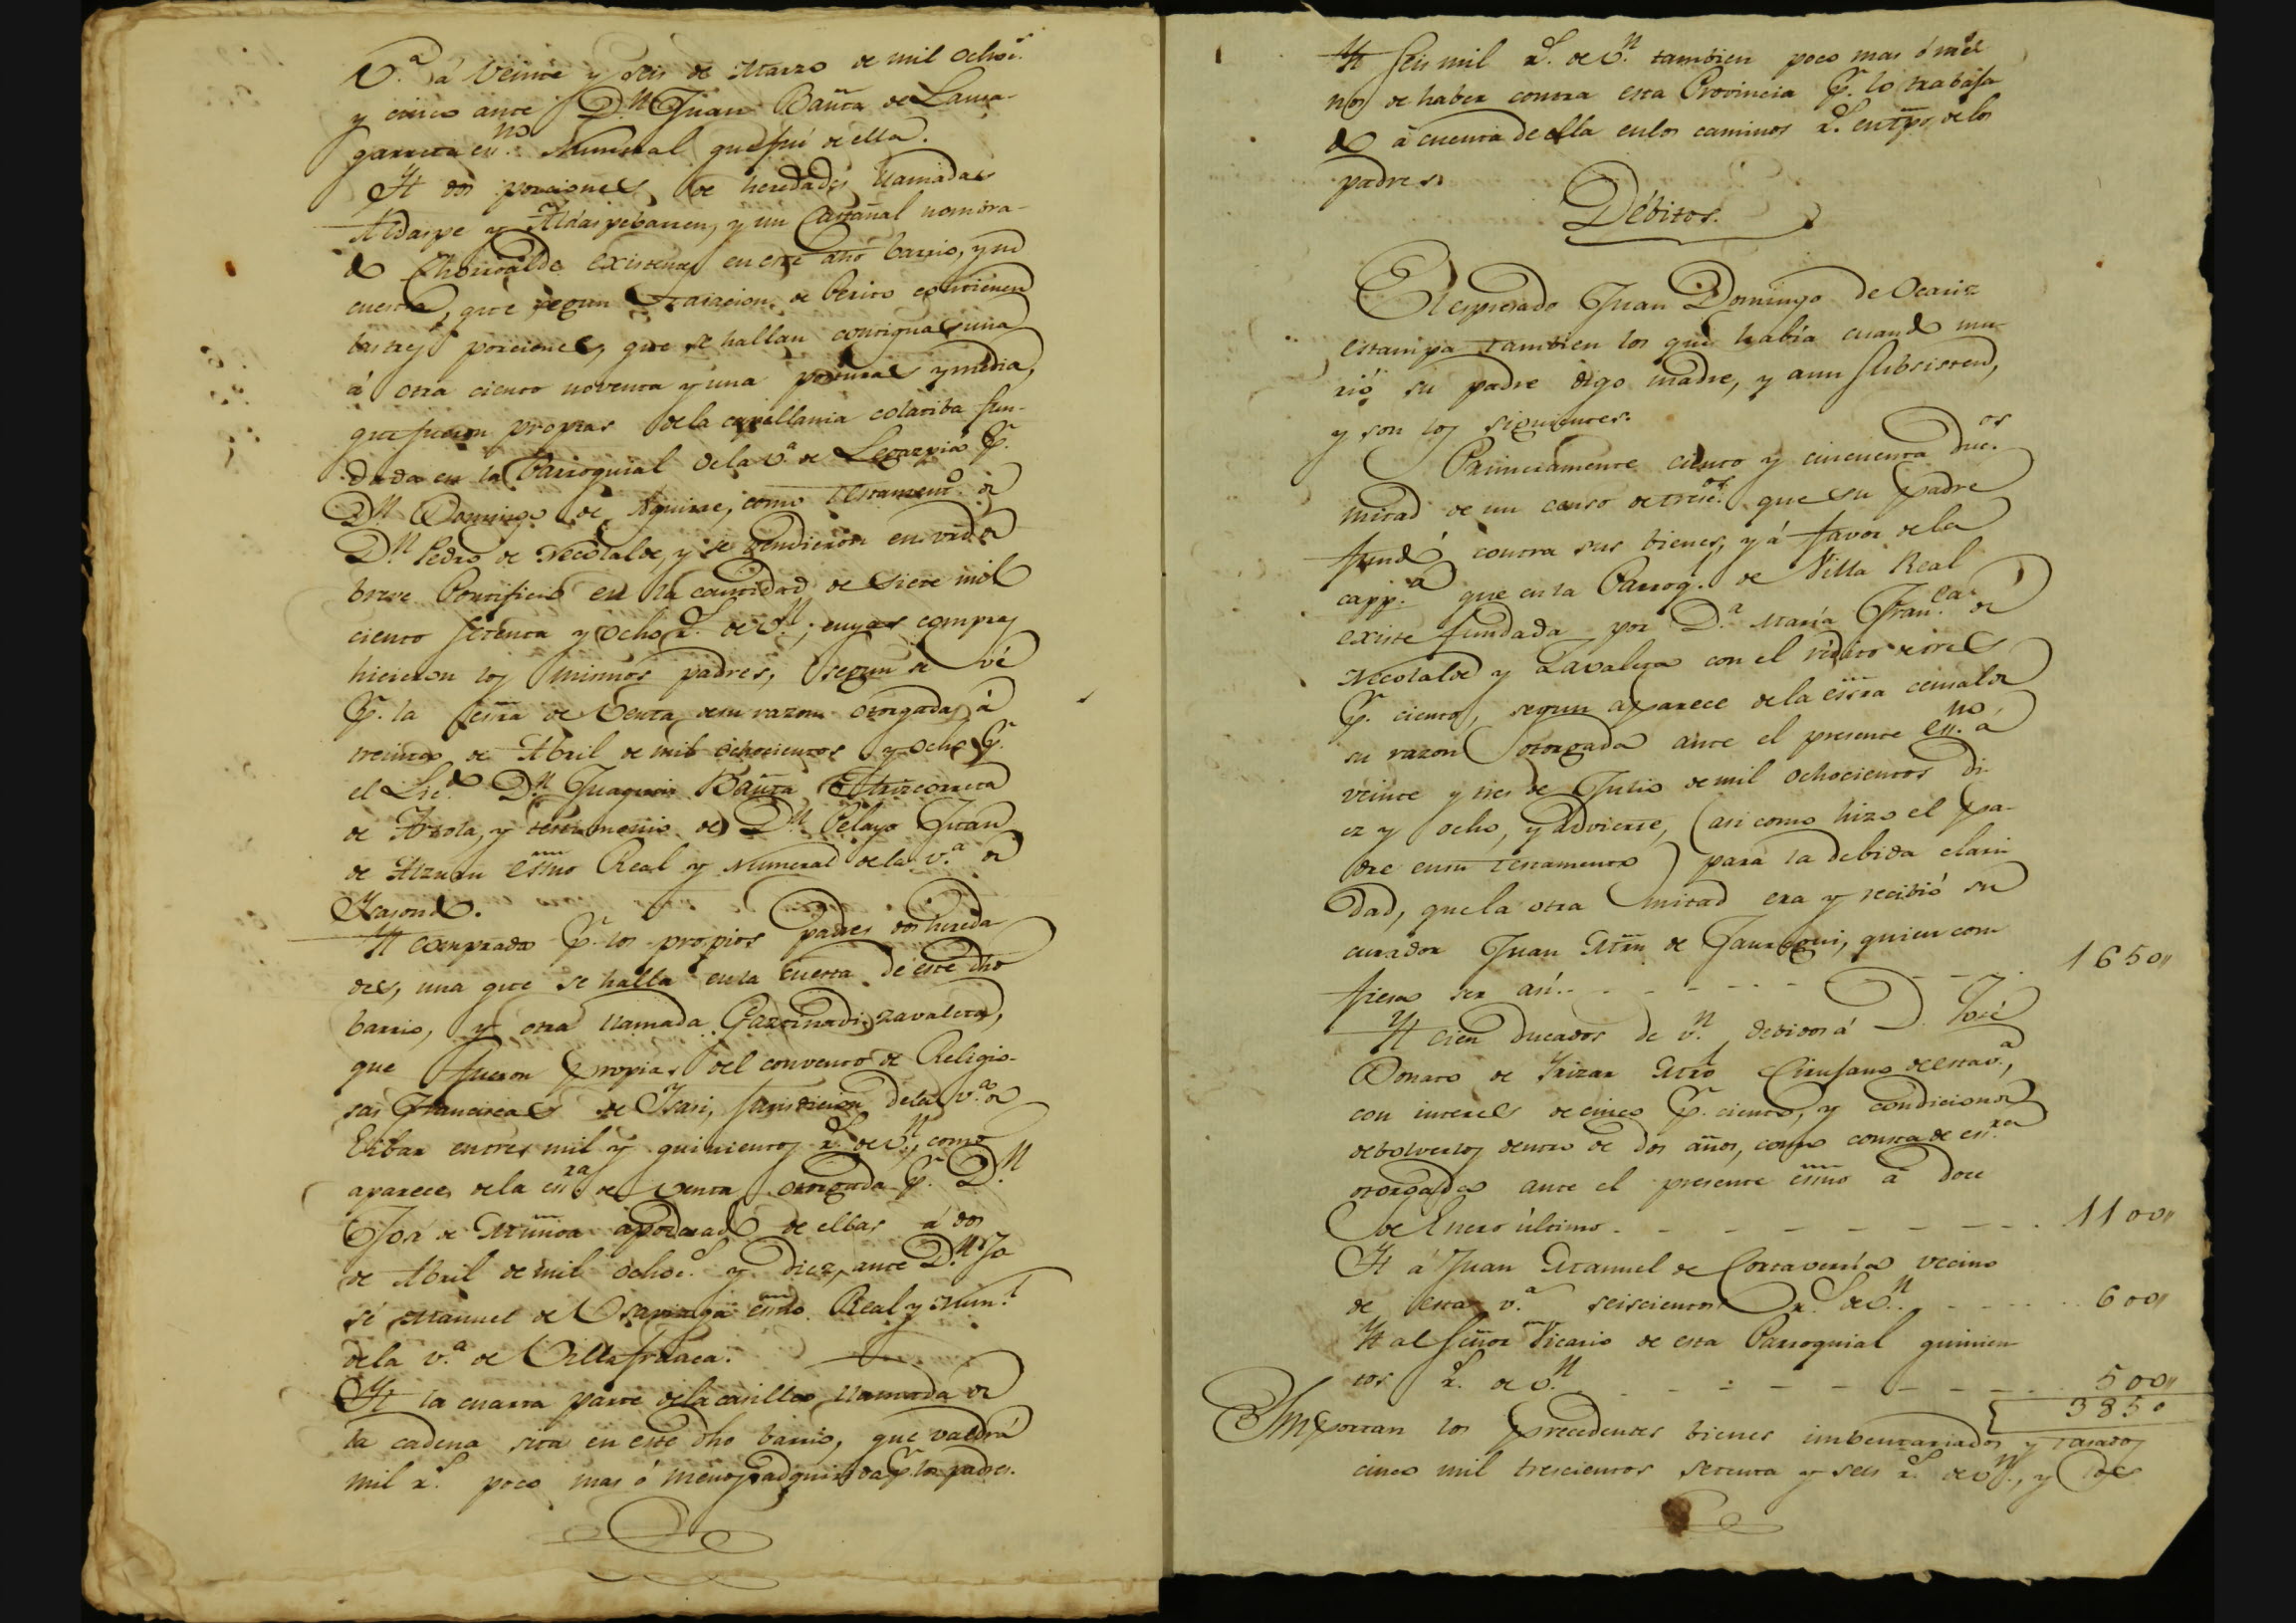 V.ª á veinte y seis de Marzo de mil ochoc.s
y cinco ante D.n Juan Bau̅ta de Lama-
garreta es.no Numeral que fué de ella.
Yt dos porciones de heredades llamadas
Aldaspe y Aldaspebarren, y un Castañal nombra-
do existentes en este dho barrio, y su
cuesta, que segun tasacion de Perito contienen
las tres porciones, que se hallan contiguas una
á otra ciento noventa y una posturas y media,
que fueron propias de la capellania colatiba fun-
dada en la Parroquial de la v.ª de Legazpia p.r
D.n Domingo de Aguirre, como testament.o de
D.n Pedro de Necolalde, y se vendieron en vrd de
breve Pontificio en la cantidad de siete mil
ciento setenta y ocho r.s de v.n; cuyas compras
hicieron los mismos padres, segun se vé
p.r la essra de Venta de su razon otorgada á
treinta de Abril de mil ochocientos y ocho p.r
el Lic.do D.n Juaquin Bau̅ta
de Arzola, y testimonio de D.n Pelayo Juan
de Alzuru essno Real y Numeral de la v.ª de
Ydasondo.
Yt comprada p.r los propios padres dos hereda
des, una que se halla en la cuesta de este dho
barrio, y otra llamada Gaztinadi zavaleta,
que fueron propias del convento de Religio-
sas Franciscas de Isasi, jurisdicion de la v.ª de
Eibar en tres mil y quinientos r.s de v.n, como
aparece de la es.ra de venta otorgada p.r D.n
José de Muñoa apoderado de ellas á dos
de Abril de mil ochoc.s y diez, ante D.n Jo
sé Manuel de Usarraga essno Real y Num.l
de la v.ª de Villafranca.
Yt la cuarta parte de la casilla llamada de
la cadena sita en este dho barrio, que valdrá
mil r.s poco mas ó menos, adquirida p.r los padres.
Yt seis mil r.s de v.n tambien poco mas ó me
nos de haber contra esta Provincia p.r lo trabaja
do á cuenta de ella en los caminos r.s en tpo de los
padres.
Débitos.
El espresado Juan Domingo de Ocariz
estampa tambien los que había cuando mu-
rió su padre digo madre, y aun subsisten,
y son los siguientes.
Primeramente ciento y cincuenta duc.os
mitad de un censo de tresc.os que su padre
fundó contra sus bienes, y á favor de la
capp.ª que en la Parroq.l de Villa Real
existe fundada por D.ª María Fran.ca de
Necolalde y Zavaleta con el rédito de tres
p.r ciento, segun aparece de la essra censal de
su razon otorgada ante el presente es.no á
veinte y tres de Julio de mil ochocientos di-
ez y ocho, y advierte, (asi como hizo el pa-
dre en su testamento) para la debida clari
dad, que la otra mitad era y recibió su
curador Juan Mrn de Jauregui, quien con-
fiesa ser así. - - - - - - 1650,,
Yt cien ducados de v.n debidos á D. José
Donato de Yrizar Mtro Cirujano de esta v.ª,
con interes de cinco p.r ciento, y condicion de
debolverlos dentro de dos años, como consta de es.ra
otorgada ante el presente essno á doce
de Enero último. - - - - - - - 1100,,
Yt á Juan Manuel de Cortaverria vecino
de esta v.ª seiscientos r.s de v.n. - - - - 600,,
Yt al Señor Vicario de esta Parroquial quinien
tos r.s de v.n. - - - - - - - 500,,
3850
Importan los precedentes bienes imbentariados y tasados
cinco mil trescientos setenta y seis r.s de v.n, y los